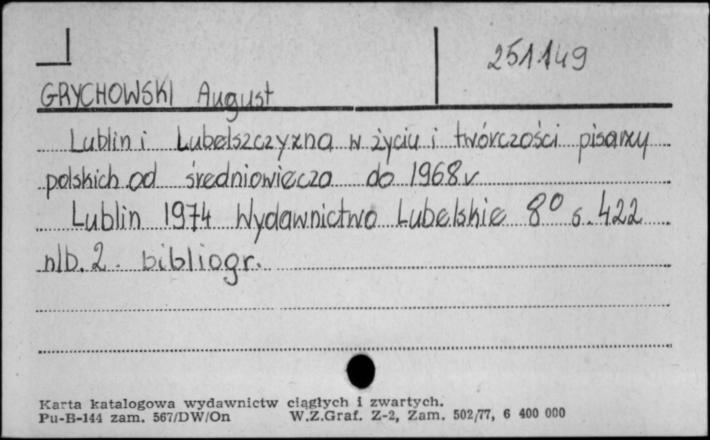 251149
GRYCHOWSKI August
Lublin i Lubelszczyzna w życiu i twórczości pisarzy
polskich od średniowiecza do 1968 r
Lublin 1974 Wydawnictwo Lubelskie 8° s. 422
nlb. 2. bibliogr.
Karta katalogowa wydawnictw ciągłych i zwartych.
Pu-B-144 zam. 567/DW/On W.Z.Graf. Z-2, Zam. 502/77, 6 400 000